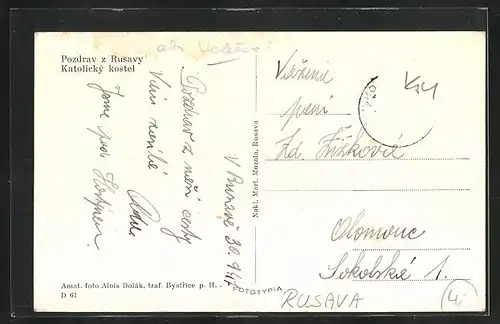 Pozdrav z Rusavy
Katolický kostel
Pozdrav z naší cesty
Vám zasílá
Jsme pod Hostýnem.
V Rusavě 30.9.47
Nakl. Mart. Mozola, Rusava.
Vážená
paní
Zd. Žižkové
Olomouc
Sokolská 1.
Amat. foto Alois Dolák, traf. Bystřice p. H. -
FOTOTYPIA
D 61
RUSAVA